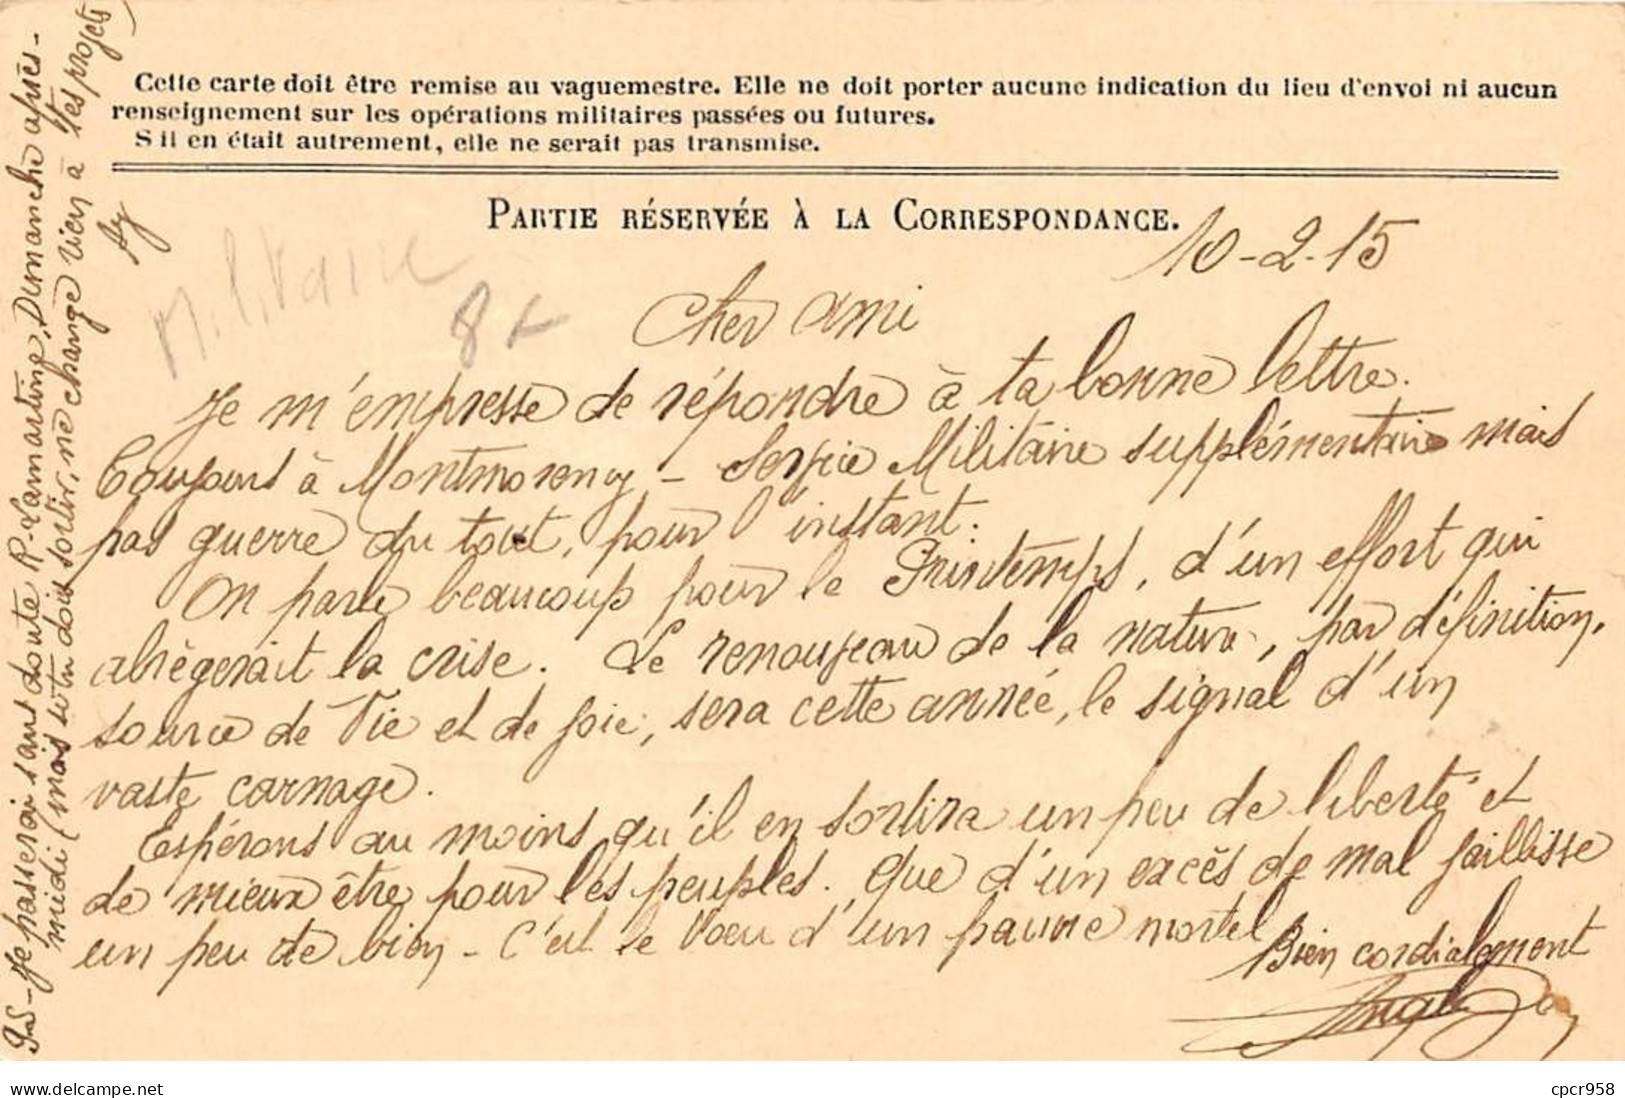 Cette carte doit être remise au vaguemestre. Elle ne doit porter aucune indication du lieu d'envoi ni aucun
renseignement sur les opérations militaires passées ou futures.
S'il en était autrement, elle ne serait pas transmise.
PARTIE RÉSERVÉE À LA CORRESPONDANCE.
10-2-15
Militaire
8
Cher ami
Je m'empresse de répondre à ta bonne lettre.
Toujours à Montmorency - Service Militaire supplémentaire mais
pas guerre du tout, pour l'instant.
On parle beaucoup pour le Printemps, d'un effort qui
abrègerait la crise. Le renouveau de la nature, par définition,
source de Vie et de joie, sera cette année, le signal d'un
vaste carnage.
Espérons au moins qu'il en sortira un peu de liberté et
de mieux être pour les peuples. Que d'un excès de mal jaillisse
un peu de bien - C'est le Voeu d'un pauvre mortel
Bien cordialement
PS - Je passerai sans doute R. Lamartine, Dimanche après-
midi (mais si tu dois sortir, ne change rien à tes projets)
delcampe.net
cpcr958